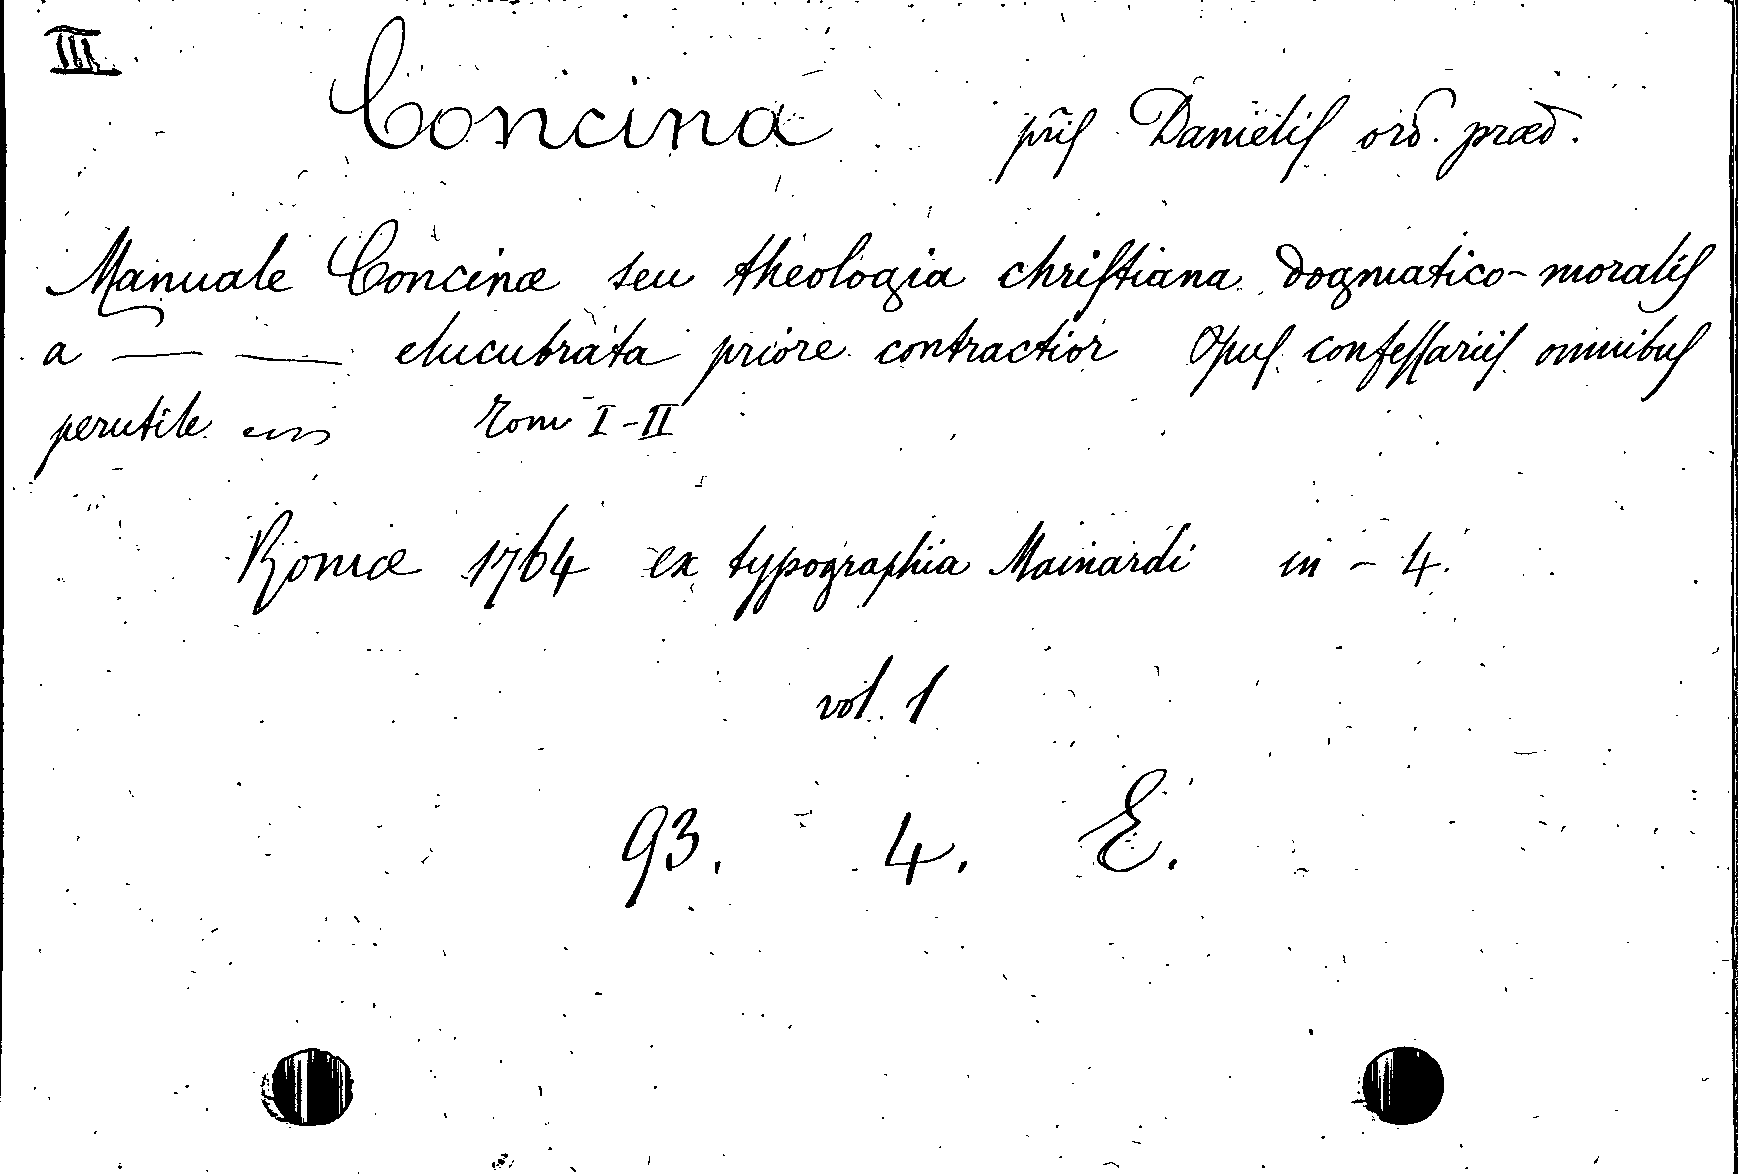 III
Concina pr̃is Danielis ord. præd.
Manuale Concinæ seu theologia christiana dogmatico-moralis
a — — elucubrata priore contractior Opus confessariis omnibus
perutile Tomi I-II
Romæ 1764 ex typographia Mainardi in-4.
vol. 1
93. 4. E.